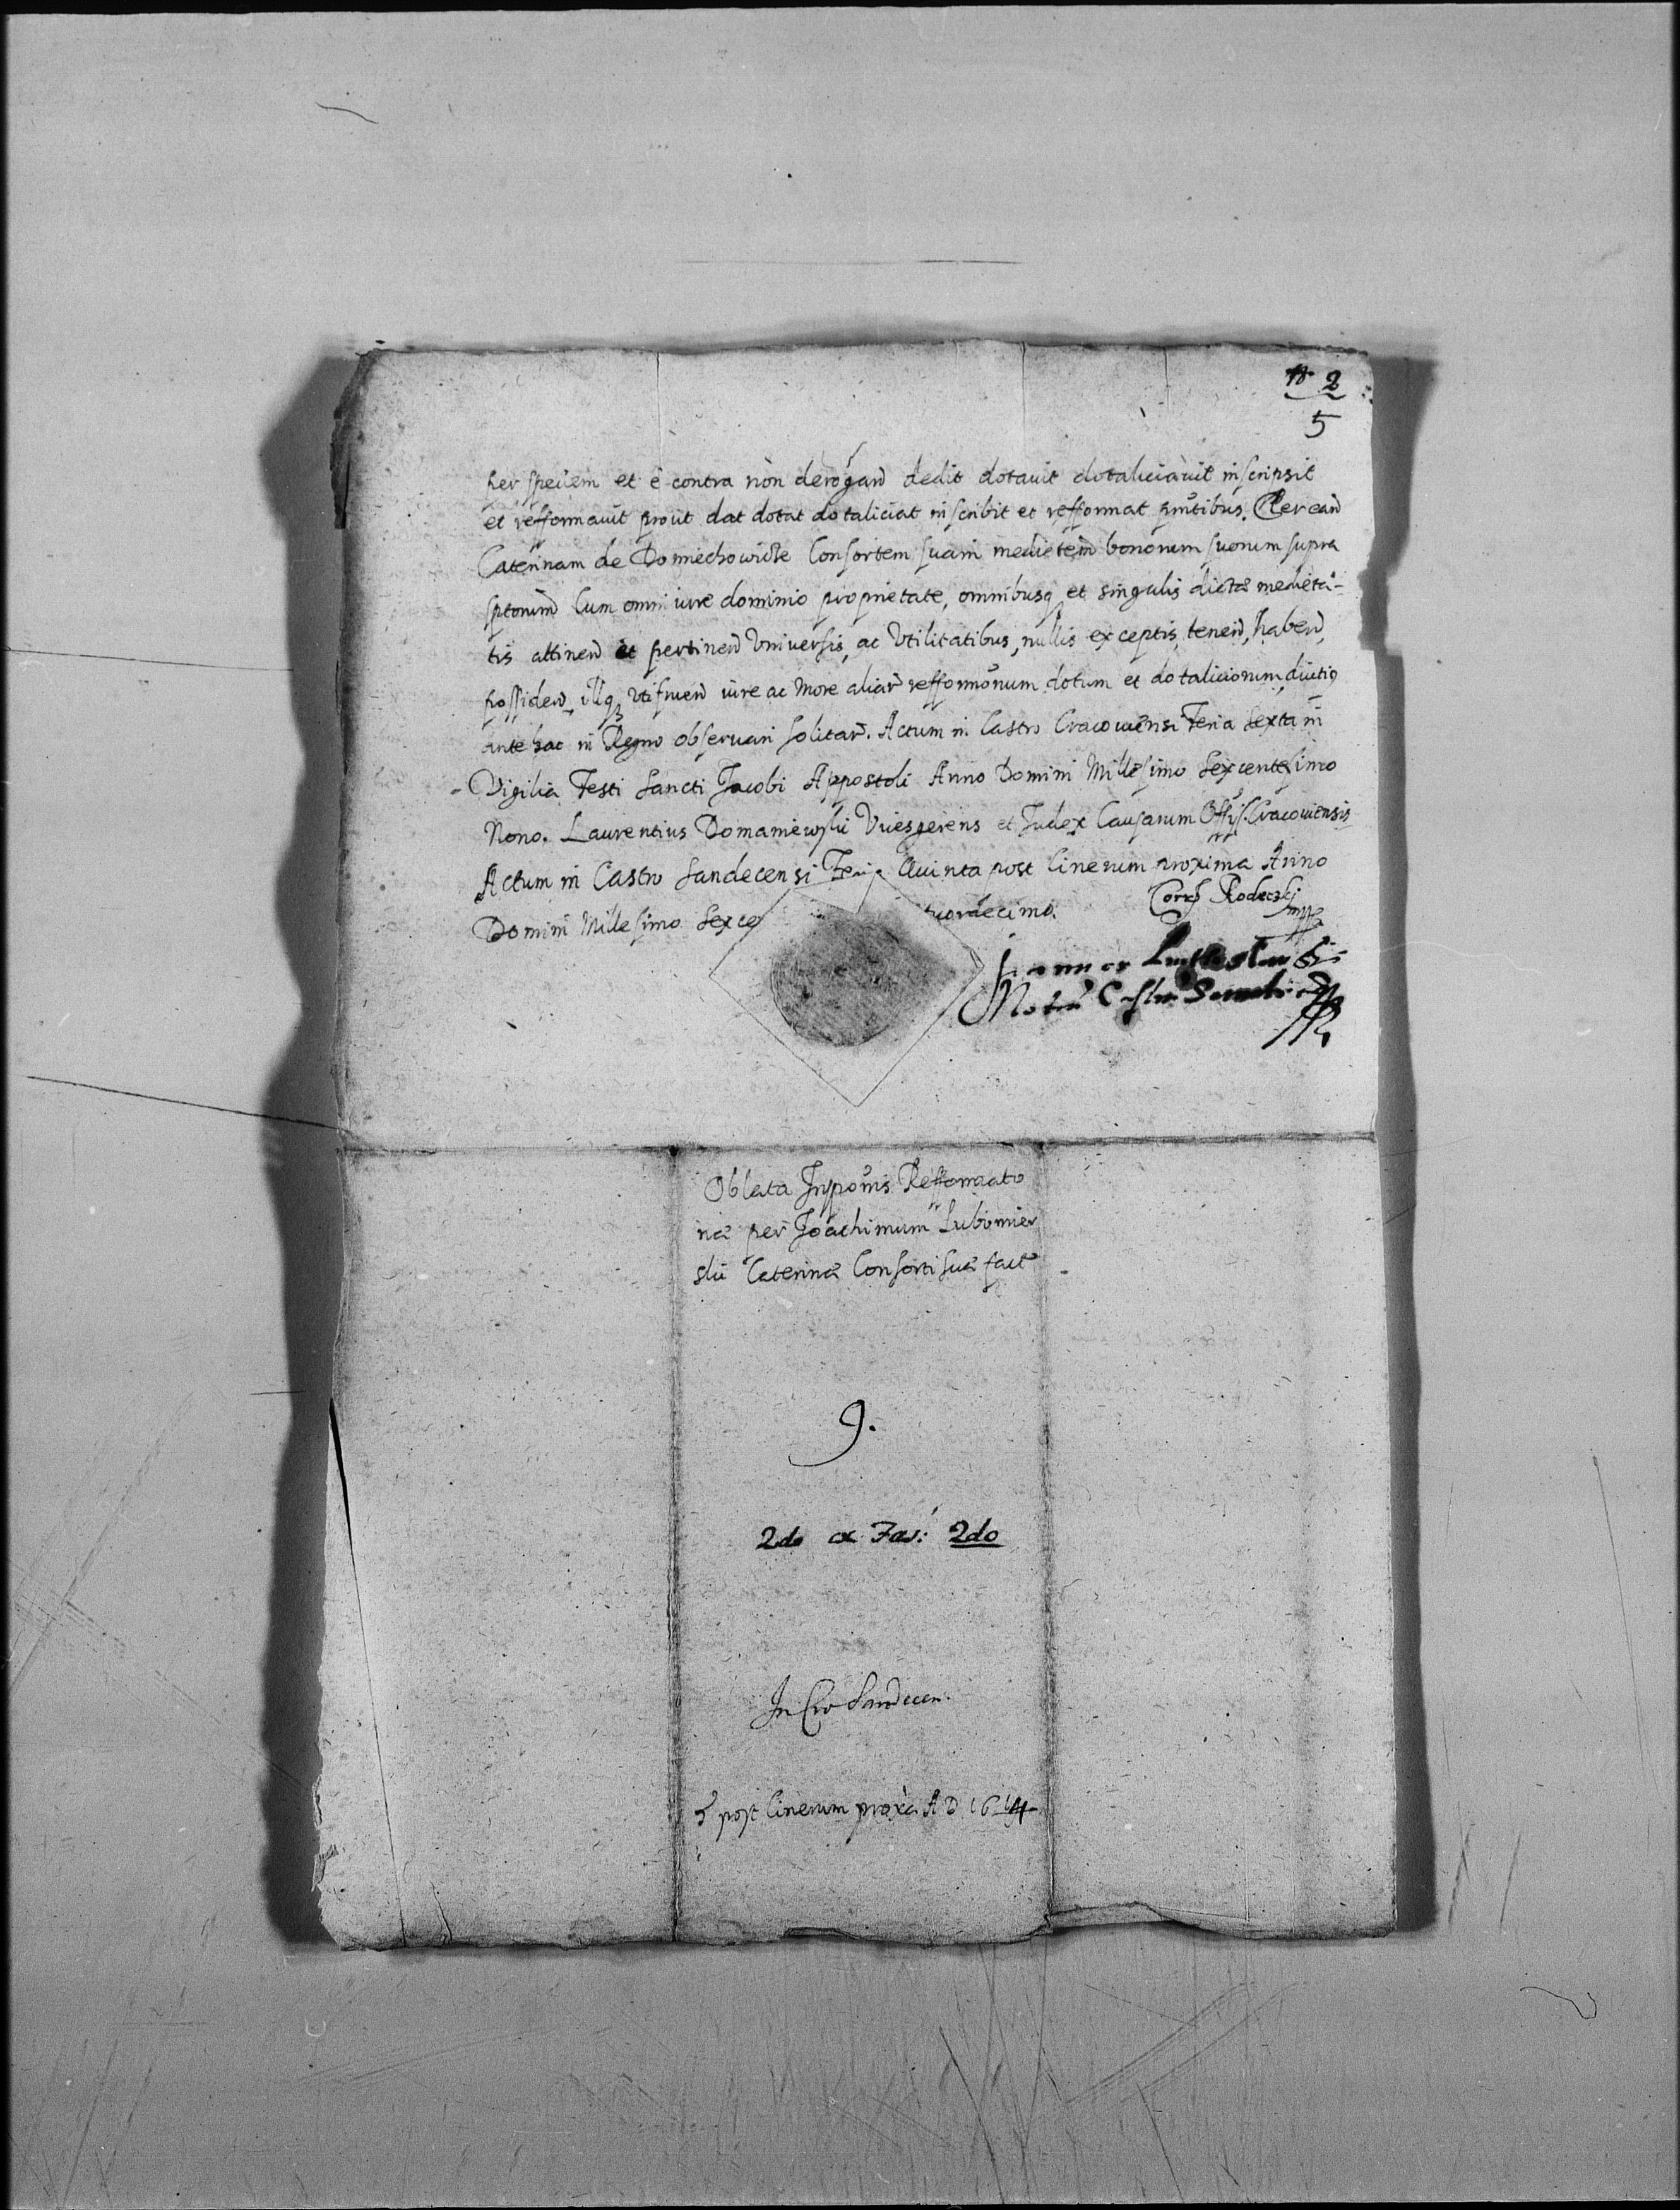 N 2
5
per speciem et è contra non derogand dedit dotavit dotaliciavit inscripsit
et refformavit prout dat dotat dotaliciat inscribit et refformat pñtibus. Per eand
Caterinam de Domiechowicze Consortem suam medietem bonorum suorum supra
sptorum Cum omni iure dominio proprietate, omnibusq et singulis dictæ medieta-
tis attinen et pertinen Vniversis, ac Vtilitatibus, nullis exceptis, tenend, habend,
possidend, illisq Vtifruend iure ac More aliar refformonum dotum et dotaliciorum diutiq
ante hac in Regno observari solitar. Actum in Castro Cracoviensi Feria Sexta in
Vigilia Festi Sancti Jacobi Appostoli Anno Domini Millesimo Sexcentesimo
Nono. Laurentius Domaniewski Vicesgerens et Judex Causarum Offy. Cracoviensis
Actum in Castro Sandecensi Feria Quinta post Cinerum proxima Anno
Domini Millesimo Sexce uordecimo. Corr Rodecski
Joannes
Notari Castr
Oblata Insponis Refformato
riæ per Joachimum Lubomier
ski Caterinæ Consorti suæ fact
9.
2do ex Fas: 2do
In Cro Sandecen.
5 post Cinerum proxa A D 1614